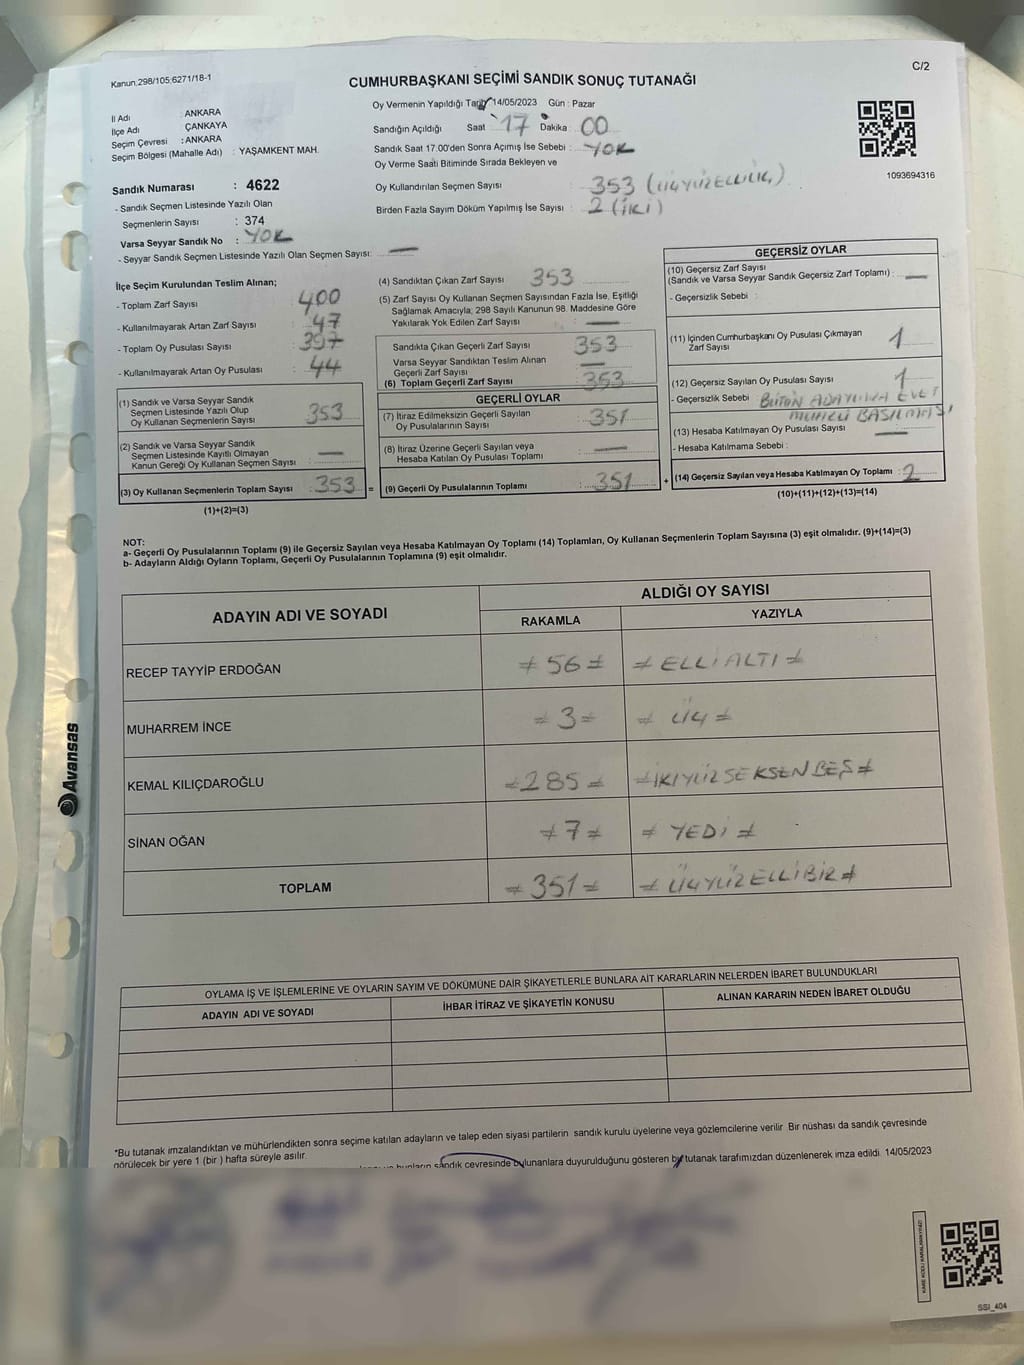 Kanun.298/105;6271/18-1
C/2
CUMHURBAŞKANI SEÇİMİ SANDIK SONUÇ TUTANAĞI
İl Adı : ANKARA
İlçe Adı ÇANKAYA
Seçim Çevresi : ANKARA
Seçim Bölgesi (Mahalle Adı) : YAŞAMKENT MAH.
Oy Vermenin Yapıldığı Tarih 14/05/2023 Gün : Pazar
Sandığın Açıldığı Saat 17 Dakika : 00
Sandık Saat 17.00'den Sonra Açımış İse Sebebi : YOK
Oy Verme Saati Bitiminde Sırada Bekleyen ve
Oy Kullandırılan Seçmen Sayısı : 353 (ÜÇYÜZELLİÜÇ)
Birden Fazla Sayım Döküm Yapılmış İse Sayısı : 2 (İKİ)
1093694316
Sandık Numarası : 4622
- Sandık Seçmen Listesinde Yazılı Olan
Seçmenlerin Sayısı : 374
Varsa Seyyar Sandık No : YOK
- Seyyar Sandık Seçmen Listesinde Yazılı Olan Seçmen Sayısı: —
İlçe Seçim Kurulundan Teslim Alınan;
- Toplam Zarf Sayısı : 400
- Kullanılmayarak Artan Zarf Sayısı : 47
- Toplam Oy Pusulası Sayısı : 397
- Kullanılmayarak Artan Oy Pusulası : 44
(1) Sandık ve Varsa Seyyar Sandık
Seçmen Listesinde Yazılı Olup
Oy Kullanan Seçmenlerin Sayısı : 353
(2) Sandık ve Varsa Seyyar Sandık
Seçmen Listesinde Kayıtlı Olmayan
Kanun Gereği Oy Kullanan Seçmen Sayısı : —
(3) Oy Kullanan Seçmenlerin Toplam Sayısı : 353 =
(1)+(2)=(3)
(4) Sandıktan Çıkan Zarf Sayısı 353
(5) Zarf Sayısı Oy Kullanan Seçmen Sayısından Fazla İse, Eşitliği
Sağlamak Amacıyla; 298 Sayılı Kanunun 98. Maddesine Göre
Yakılarak Yok Edilen Zarf Sayısı : —
Sandıkta Çıkan Geçerli Zarf Sayısı : 353
Varsa Seyyar Sandıktan Teslim Alınan
Geçerli Zarf Sayısı : —
(6) Toplam Geçerli Zarf Sayısı : 353
GEÇERLİ OYLAR
(7) İtiraz Edilmeksizin Geçerli Sayılan
Oy Pusulalarının Sayısı : 351
(8) İtiraz Üzerine Geçerli Sayılan veya
Hesaba Katılan Oy Pusulası Toplamı : —
(9) Geçerli Oy Pusulalarının Toplamı : 351 +
GEÇERSİZ OYLAR
(10) Geçersiz Zarf Sayısı
(Sandık ve Varsa Seyyar Sandık Geçersiz Zarf Toplamı) : —
- Geçersizlik Sebebi :
(11) İçinden Cumhurbaşkanı Oy Pusulası Çıkmayan
Zarf Sayısı : 1
(12) Geçersiz Sayılan Oy Pusulası Sayısı : 1
- Geçersizlik Sebebi : BÜTÜN ADAYLARA EVET
MÜHRÜ BASILMASI
(13) Hesaba Katılmayan Oy Pusulası Sayısı : —
- Hesaba Katılmama Sebebi :
(14) Geçersiz Sayılan veya Hesaba Katılmayan Oy Toplamı : 2
(10)+(11)+(12)+(13)=(14)
NOT:
a- Geçerli Oy Pusulalarının Toplamı (9) ile Geçersiz Sayılan veya Hesaba Katılmayan Oy Toplamı (14) Toplamları, Oy Kullanan Seçmenlerin Toplam Sayısına (3) eşit olmalıdır. (9)+(14)=(3)
b- Adayların Aldığı Oyların Toplamı, Geçerli Oy Pusulalarının Toplamına (9) eşit olmalıdır.
ADAYIN ADI VE SOYADI
ALDIĞI OY SAYISI
RAKAMLA YAZIYLA
RECEP TAYYİP ERDOĞAN ≠ 56 = ≠ ELLİALTI ≠
MUHARREM İNCE = 3 = = ÜÇ =
KEMAL KILIÇDAROĞLU =285 = =İKİYÜZSEKSENBEŞ≠
SİNAN OĞAN ≠ 7 ≠ ≠ YEDİ ≠
TOPLAM = 351 = = ÜÇYÜZELLİBİR ≠
OYLAMA İŞ VE İŞLEMLERİNE VE OYLARIN SAYIM VE DÖKÜMÜNE DAİR ŞİKAYETLERLE BUNLARA AİT KARARLARIN NELERDEN İBARET BULUNDUKLARI
ADAYIN ADI VE SOYADI İHBAR İTİRAZ VE ŞİKAYETİN KONUSU ALINAN KARARIN NEDEN İBARET OLDUĞU
*Bu tutanak imzalandıktan ve mühürlendikten sonra seçime katılan adayların ve talep eden siyasi partilerin sandık kurulu üyelerine veya gözlemcilerine verilir. Bir nüshası da sandık çevresinde
görülecek bir yere 1 (bir ) hafta süreyle asılır.
bunların sandık çevresinde bulunanlara duyurulduğunu gösteren bu tutanak tarafımızdan düzenlenerek imza edildi. 14/05/2023
Avansas
SSI_404